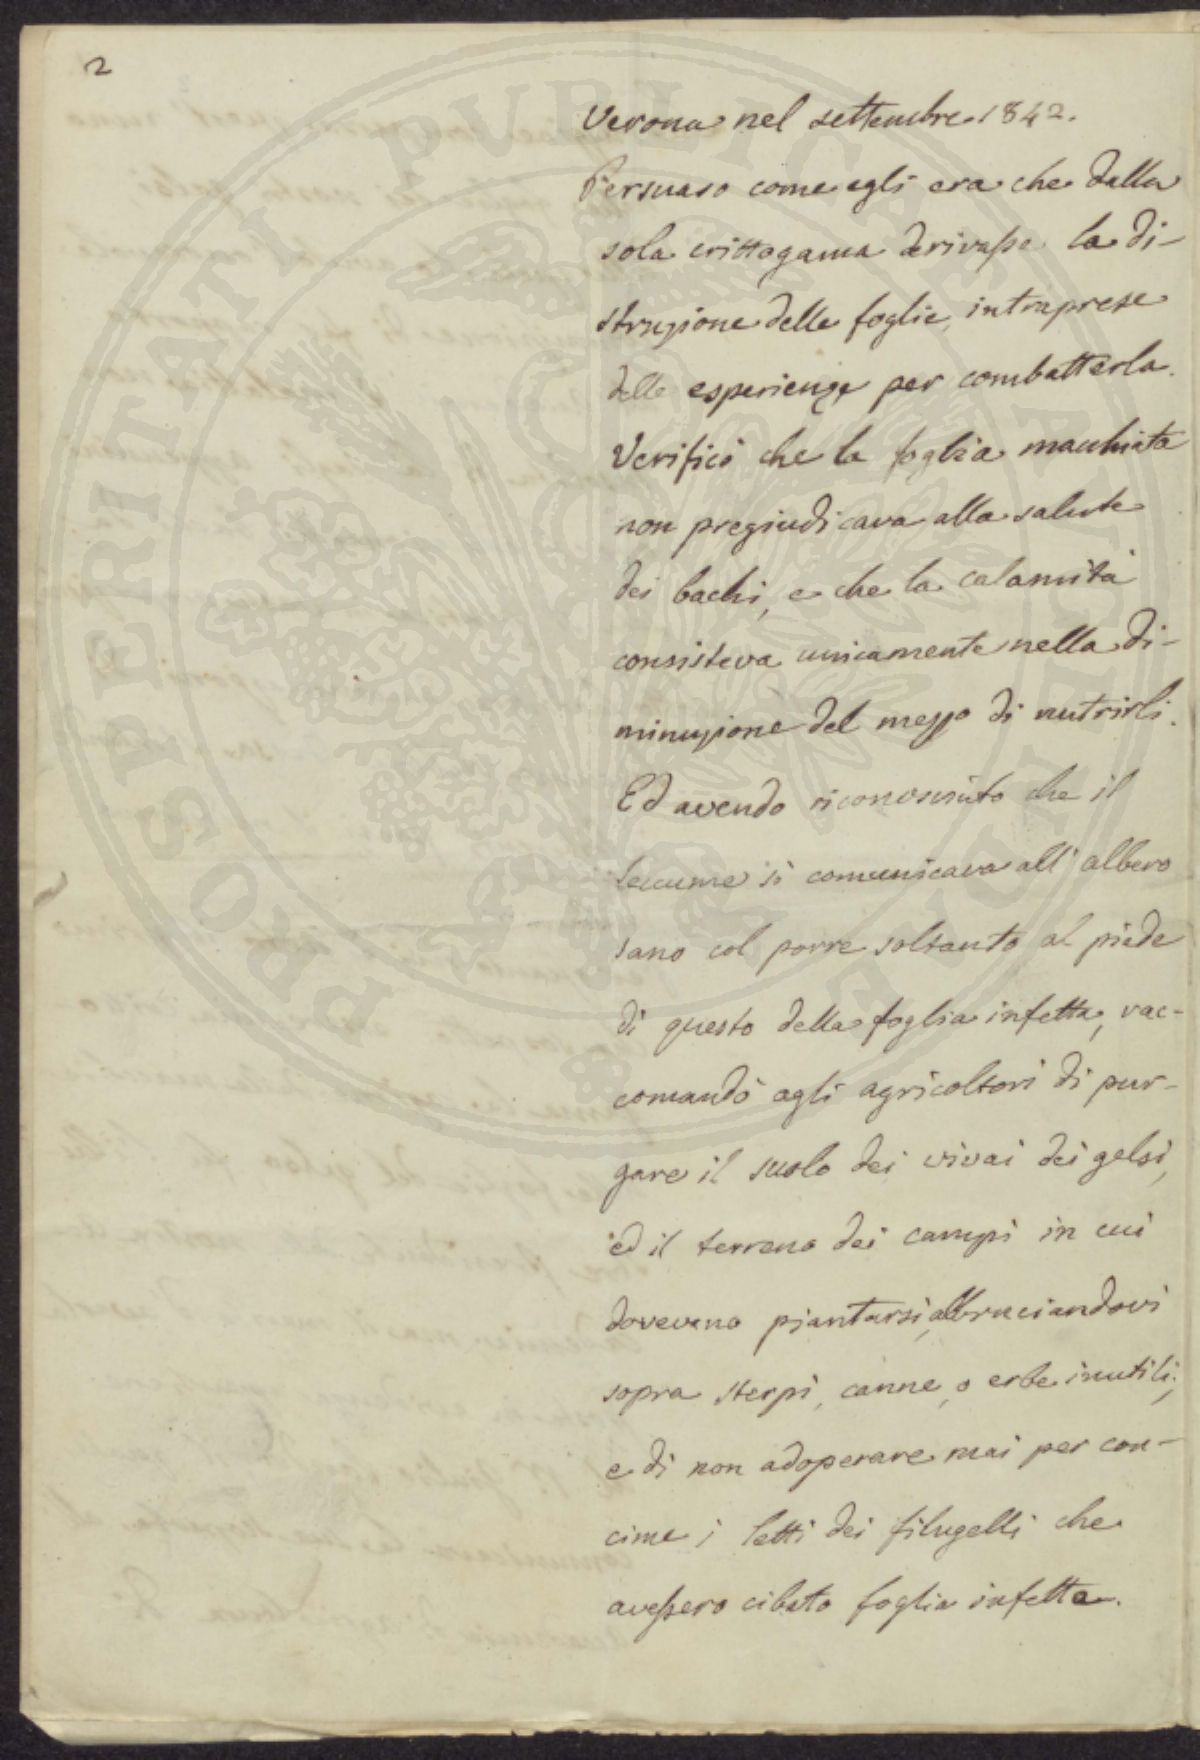 2
Verona nel settembre 1842.
Persuaso come egli era che dalla
sola crittogama derivasse la di-
struzione delle foglie, intraprese
delle esperienze per combatterla.
Verificò che la foglia macchiata
non pregiudicava alla salute
dei bachi, e che la calamità
consisteva unicamente nella di-
minuzione del mezzo di nutrirli.
Ed avendo riconosciuto che il
seccume si comunicava all'albero
sano col porre soltanto al piede
di questo della foglia infetta, rac-
comandò agli agricoltori di pur-
gare il suolo dei vivai dei gelsi,
ed il terreno dei campi in cui
dovevano piantarsi, abbruciandovi
sopra sterpi, canne, o erbe inutili;
e di non adoperare mai per con-
cime i letti dei filugelli che
avessero cibato foglia infetta.
PROSPERITATI PUBLICAE AUGENDAE